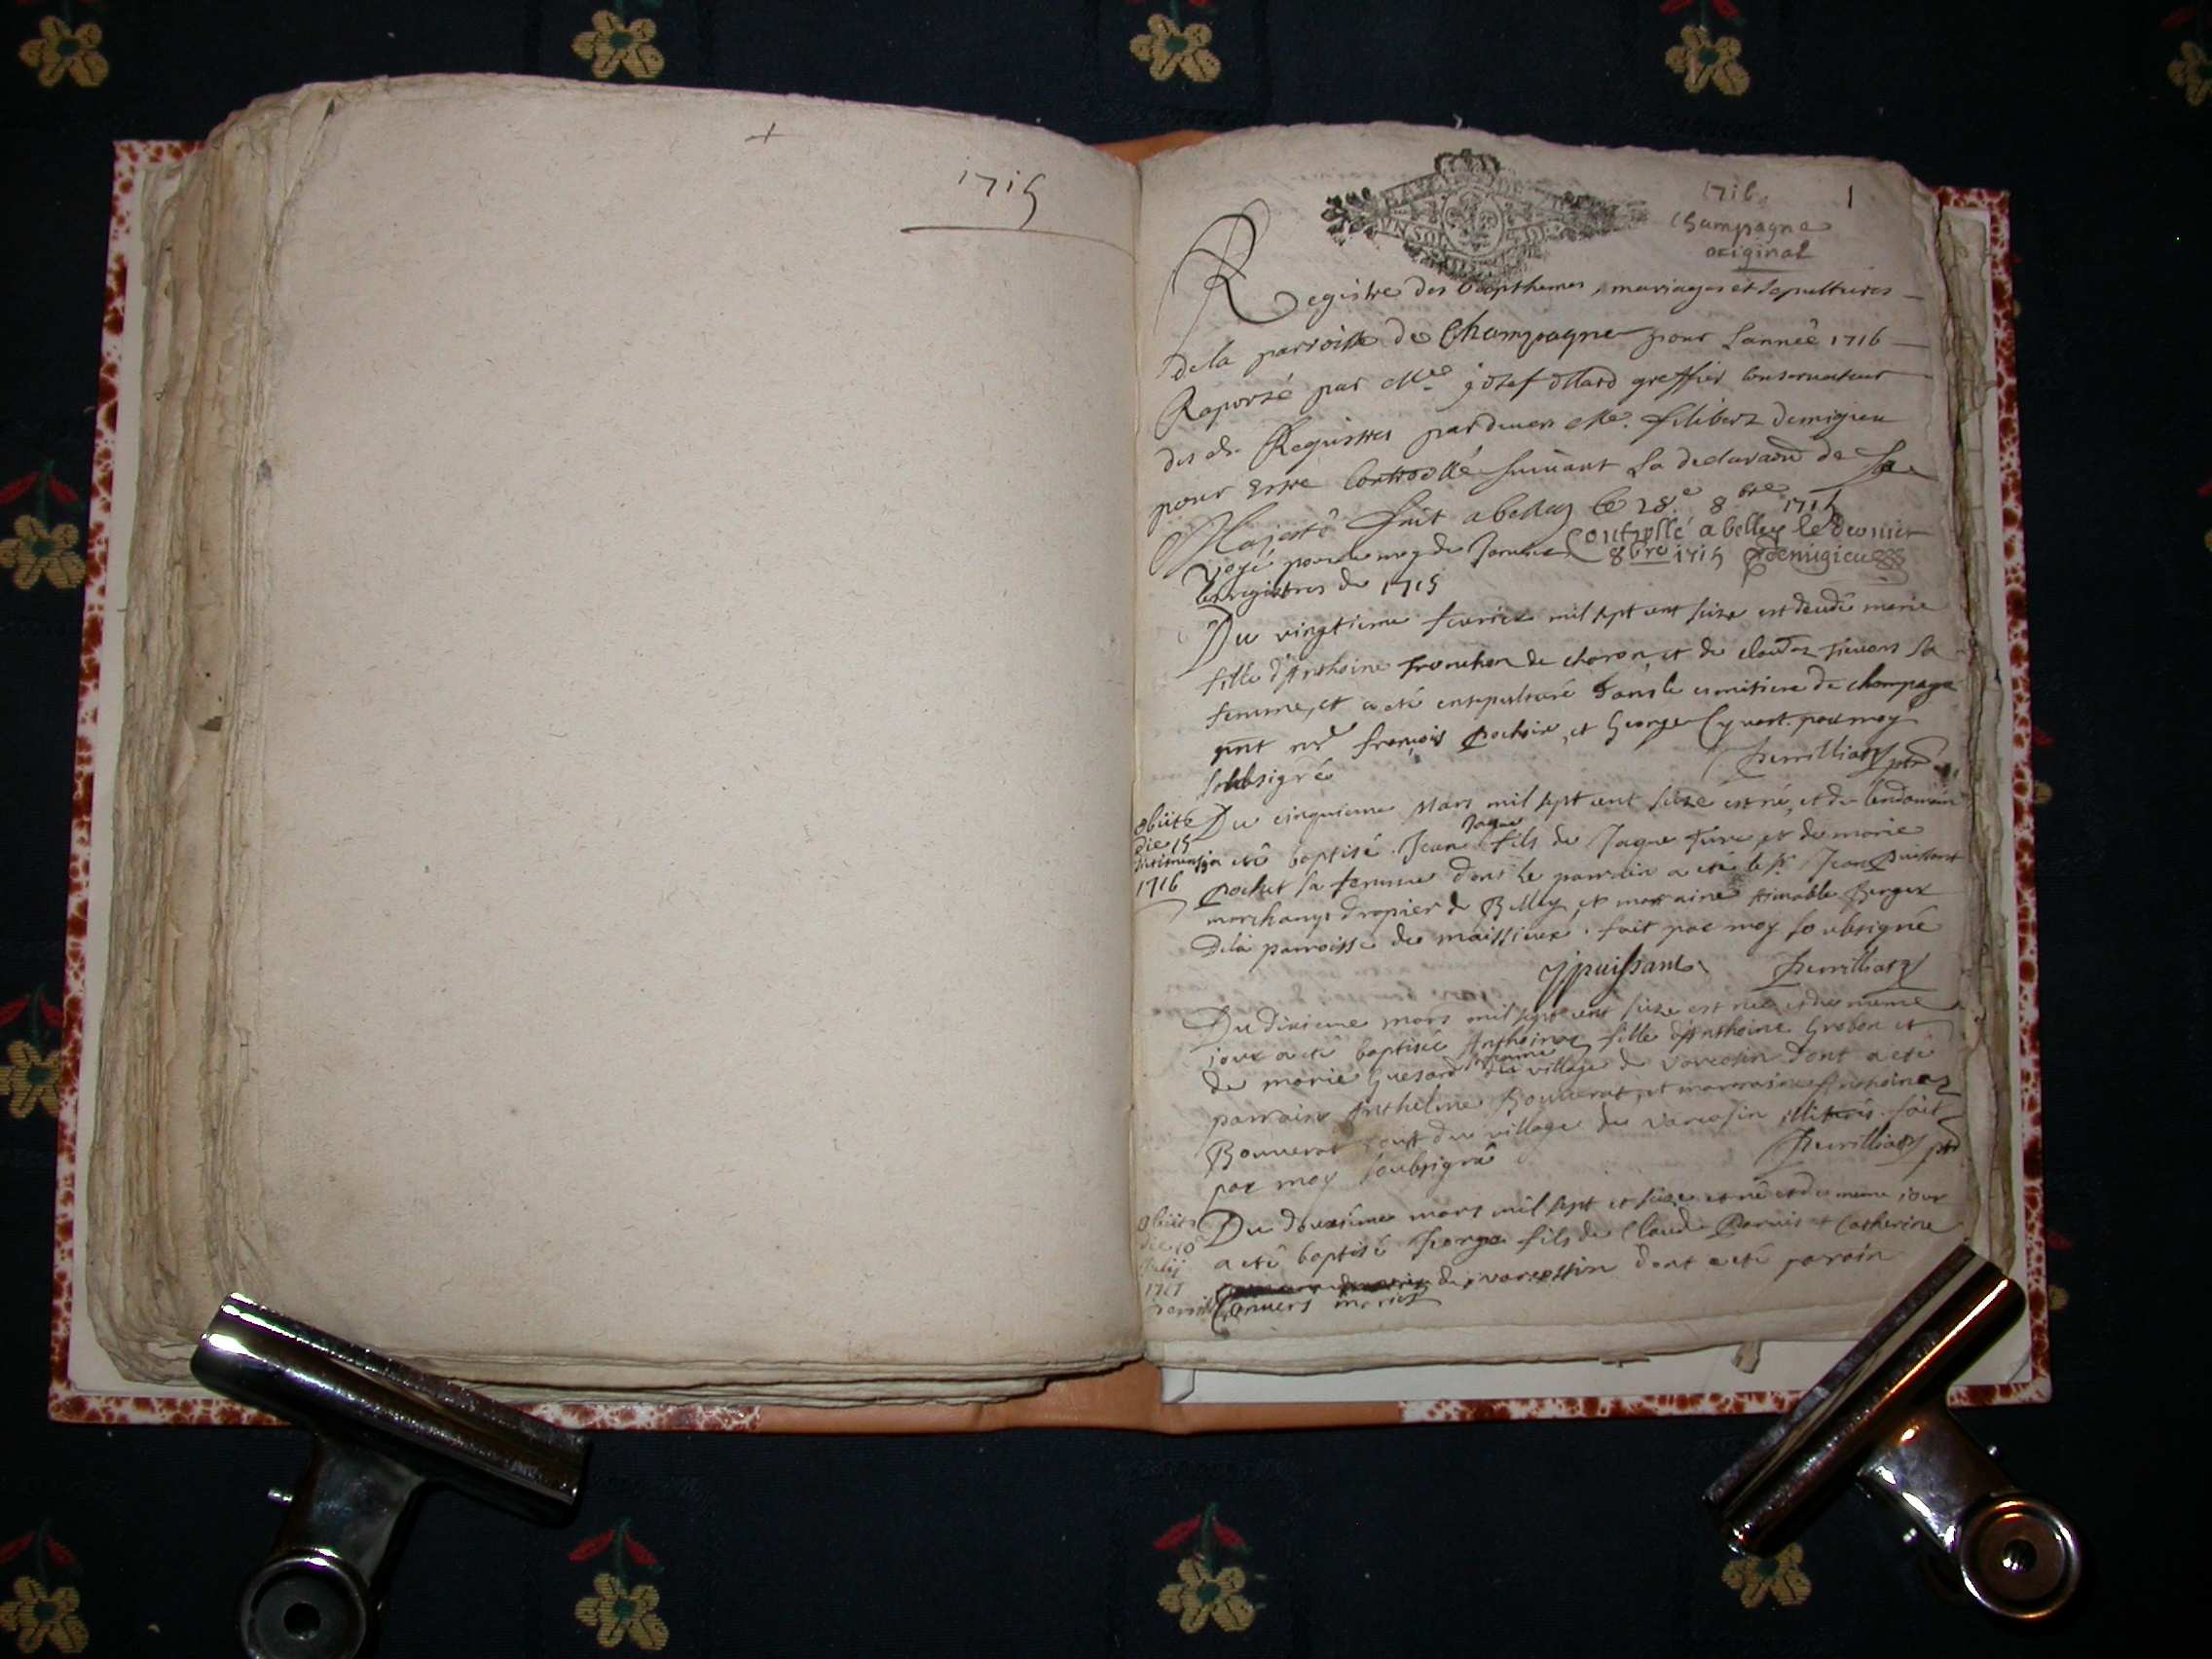 1715
UN SOL
1716
Champagne
original
1
Registre des Bapthemes, mariages et sepultures
de la parroisse de Champagne pour l'année 1716
Raporté par Me josef greffier Conservateur
des Registres pardeuers Me. filibert demigieu
pour Estre Controllé suiuant la declaraõn de Sa
Majesté fait a belley le 28e 8bre 1715
Controllé a belley le dernier
8bre 1715 Demigieu
les registres de 1715
Du vingtieme feurier mil sept cent seize est decedé marie
fille d'Anthoine de et de sa
femme, et a eté ensepulturé dans le cimitiere de champagne
françois Pochoix, et George Cyvert. par moy
soubsigné
Perrilliat ptre
Obiit
die 15
1716
Du cinquieme Mars mil sept cent seize est né, et du lendemain
a eté baptisé Jean Jaque fils de Jaque et de marie
Pochet sa femme dont le parrain a eté le sr Jean Puissant
marchant drapier de Belley, et marraine Aimable Berger
De la parroisse de maissieux. fait par moy soubsigné
J puissant Perrilliat
Du dixieme mars mil sept cent seize est née et du meme
jour a eté baptisée Anthoinaz fille d'Anthoine Grobon et
de marie sa femme du village de varcosin Dont a eté
parrain Anthelme Bouuerat, et marraine Anthoinaz
Bouuerat tout du village de varcosin fait
par moy soubsigné
Perrilliat ptre
Obiit
die 10
Julij
Du douzieme mars mil sept et seize est né et du meme jour
a eté baptisé George fils de Claude Paruis et Catherine
de varcossin dont a eté parain
mariez